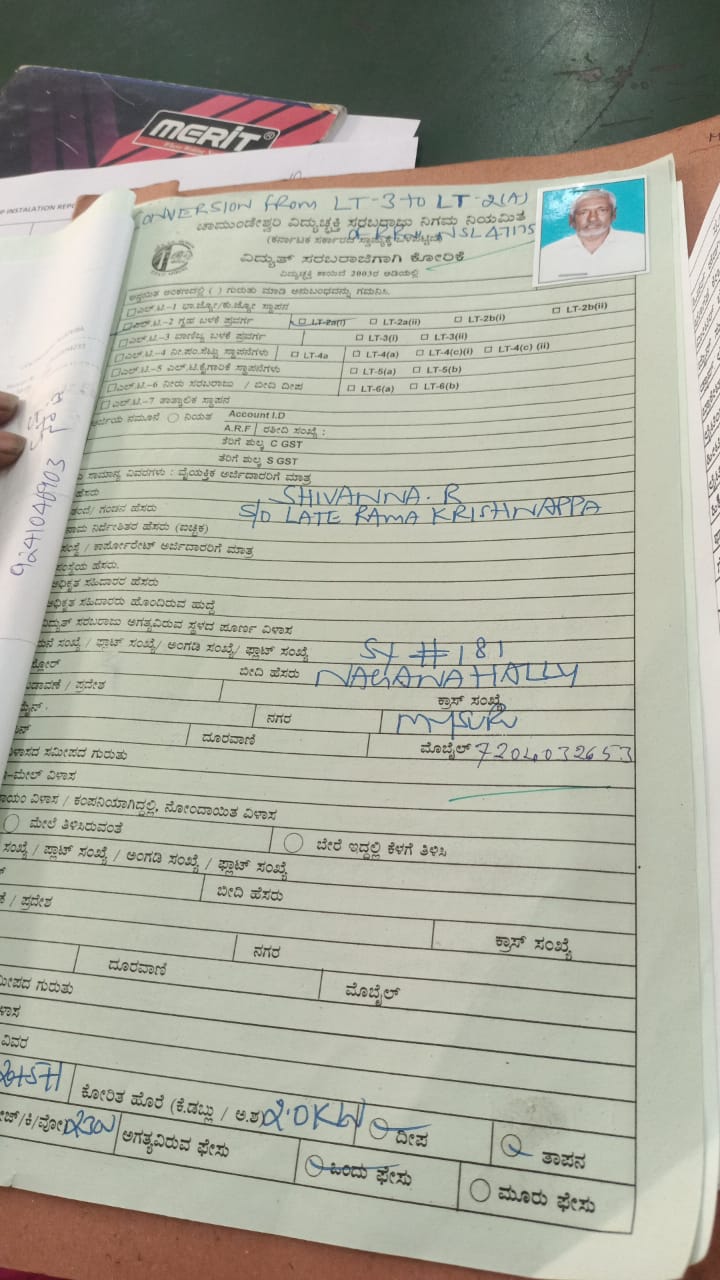 MERIT®
P INSTALATION REPO
CONVERSION from LT-3 to LT-2(A)
ಚಾಮುಂಡೇಶ್ವರಿ ವಿದ್ಯುಚ್ಛಕ್ತಿ ಸರಬರಾಜು ನಿಗಮ ನಿಯಮಿತ
NSL47175
ವಿದ್ಯುತ್ ಸರಬರಾಜಿಗಾಗಿ ಕೋರಿಕೆ
ವಿದ್ಯುಚ್ಛಕ್ತಿ ಕಾಯಿದೆ 2003ರ ಅಡಿಯಲ್ಲಿ
ಎಲ್.ಟಿ.-1 ಭಾ.ಜ್ಯೋ/ಕು.ಜ್ಯೋ ಸ್ಥಾಪನ
ಎಲ್.ಟಿ.-2 ಗೃಹ ಬಳಕೆ ಪ್ರವರ್ಗ LT-2a(i) LT-2a(ii) LT-2b(i) LT-2b(ii)
ಎಲ್.ಟಿ.-3 ವಾಣಿಜ್ಯ ಬಳಕೆ ಪ್ರವರ್ಗ LT-3(i) LT-3(ii)
ಎಲ್.ಟಿ.-4 ನೀ.ಪಂ.ಸೆಟ್ಟು ಸ್ಥಾಪನೆಗಳು LT-4a LT-4(a) LT-4(c)(i) LT-4(c) (ii)
ಎಲ್.ಟಿ.-5 ಎಲ್.ಟಿ.ಕೈಗಾರಿಕೆ ಸ್ಥಾಪನೆಗಳು LT-5(a) LT-5(b)
ಎಲ್.ಟಿ.-6 ನೀರು ಸರಬರಾಜು / ಬೀದಿ ದೀಪ LT-6(a) LT-6(b)
ಎಲ್.ಟಿ.-7 ತಾತ್ಕಾಲಿಕ ಸ್ಥಾಪನ
ಅರ್ಜಿಯ ನಮೂನೆ ನಿಯತ Account I.D
A.R.F ರಶೀದಿ ಸಂಖ್ಯೆ :
ತೆರಿಗೆ ಶುಲ್ಕ C GST
ತೆರಿಗೆ ಶುಲ್ಕ S GST
ಸಾಮಾನ್ಯ ವಿವರಗಳು : ವೈಯಕ್ತಿಕ ಅರ್ಜಿದಾರರಿಗೆ ಮಾತ್ರ
ಹೆಸರು SHIVANNA. R
ತಂದೆ/ ಗಂಡನ ಹೆಸರು S/O LATE RAMA KRISHNAPPA
ನಾಮ ನಿರ್ದೇಶಿತರ ಹೆಸರು (ಐಚ್ಛಿಕ)
ಸಂಸ್ಥೆ / ಕಾರ್ಪೋರೇಟ್ ಅರ್ಜಿದಾರರಿಗೆ ಮಾತ್ರ
ಸಂಸ್ಥೆಯ ಹೆಸರು.
ಅಧಿಕೃತ ಸಹಿದಾರರ ಹೆಸರು
ಅಧಿಕೃತ ಸಹಿದಾರರು ಹೊಂದಿರುವ ಹುದ್ದೆ
ವಿದ್ಯುತ್ ಸರಬರಾಜು ಅಗತ್ಯವಿರುವ ಸ್ಥಳದ ಪೂರ್ಣ ವಿಳಾಸ
ಮನೆ ಸಂಖ್ಯೆ / ಫ್ಲಾಟ್ ಸಂಖ್ಯೆ/ ಅಂಗಡಿ ಸಂಖ್ಯೆ/ ಪ್ಲಾಟ್ ಸಂಖ್ಯೆ SY #181
ಬೀದಿ ಹೆಸರು NAGANAHALLY
ಬಡಾವಣೆ / ಪ್ರದೇಶ ಕ್ರಾಸ್ ಸಂಖ್ಯೆ
ನಗರ MYSURU
ದೂರವಾಣಿ ಮೊಬೈಲ್ 7204032653
ವಿಳಾಸದ ಸಮೀಪದ ಗುರುತು
ಇ-ಮೇಲ್ ವಿಳಾಸ
ಖಾಯಂ ವಿಳಾಸ / ಕಂಪನಿಯಾಗಿದ್ದಲ್ಲಿ, ನೋಂದಾಯಿತ ವಿಳಾಸ
ಮೇಲೆ ತಿಳಿಸಿರುವಂತೆ ಬೇರೆ ಇದ್ದಲ್ಲಿ ಕೆಳಗೆ ತಿಳಿಸಿ
ಸಂಖ್ಯೆ / ಪ್ಲಾಟ್ ಸಂಖ್ಯೆ / ಅಂಗಡಿ ಸಂಖ್ಯೆ / ಫ್ಲಾಟ್ ಸಂಖ್ಯೆ
ಬೀದಿ ಹೆಸರು
/ ಪ್ರದೇಶ ಕ್ರಾಸ್ ಸಂಖ್ಯೆ
ನಗರ
ದೂರವಾಣಿ ಮೊಬೈಲ್
ಸಮೀಪದ ಗುರುತು
ವಿಳಾಸ
ವಿವರ
ಕೋರಿತ ಹೊರೆ (ಕೆ.ಡಬ್ಲು / ಅ.ಶ) 2.0KW ದೀಪ ತಾಪನ
ಅಗತ್ಯವಿರುವ ಫೇಸು ಒಂದು ಫೇಸು ಮೂರು ಫೇಸು
9241046903